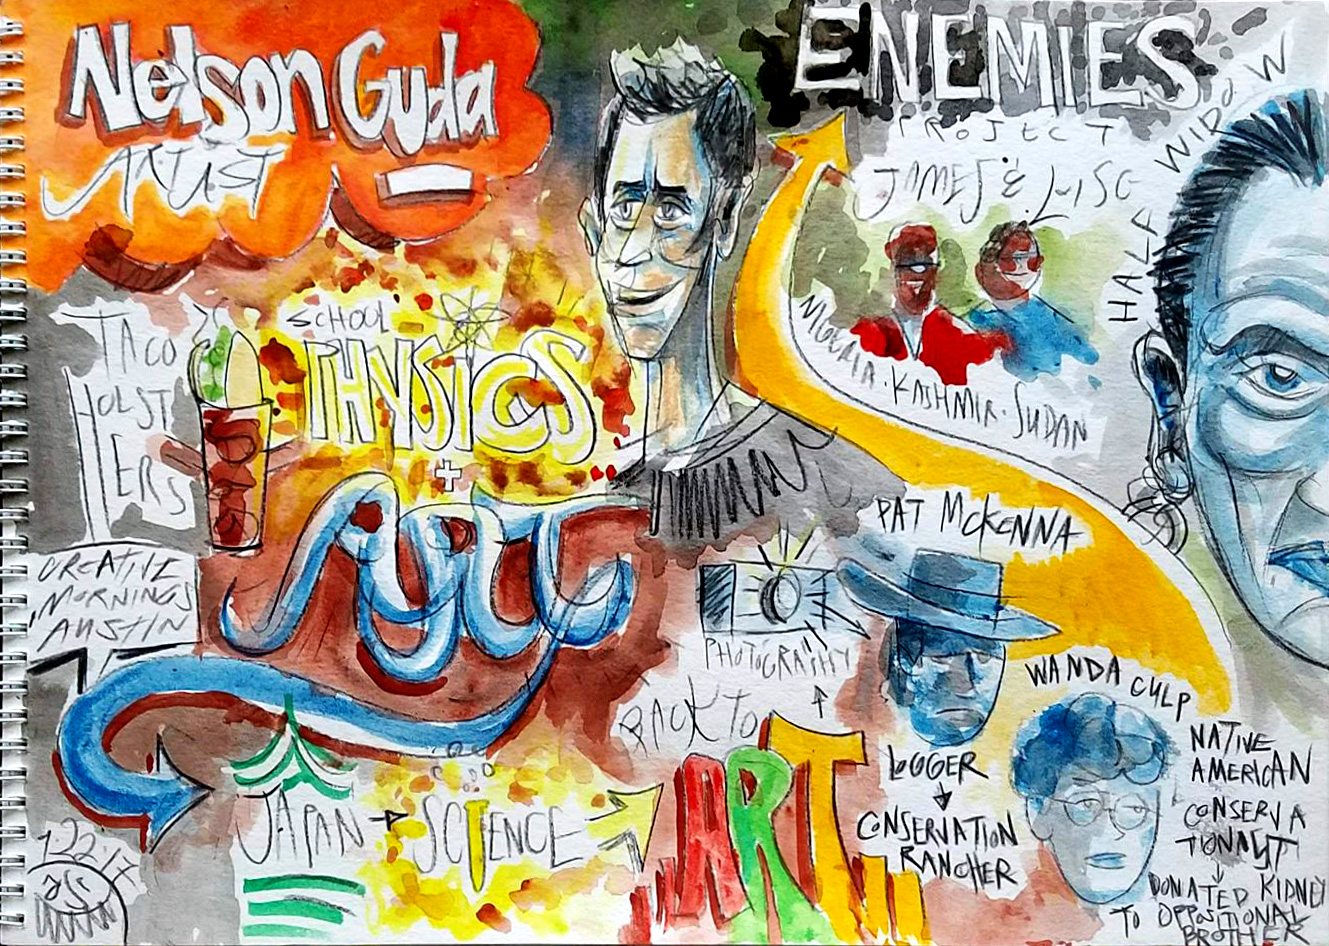 Nelson Guda
ARTIST
TACO
HOLST
ERS
CREATIVE
MORNINGS
AUSTIN
SCHOOL
PHYSICS
+
ART
JAPAN
SCIENCE
BACK TO
ART
PHOTOGRAPHY
ENEMIES
PROJECT
JAMES & 
HALF WIDOW
KASHMIR · SUDAN
PAT McKENNA
LOGGER
CONSERVATION
RANCHER
WANDA CULP
NATIVE
AMERICAN
CONSERVA
TIONIST
DONATED KIDNEY
TO OPPOSITIONAL
BROTHER